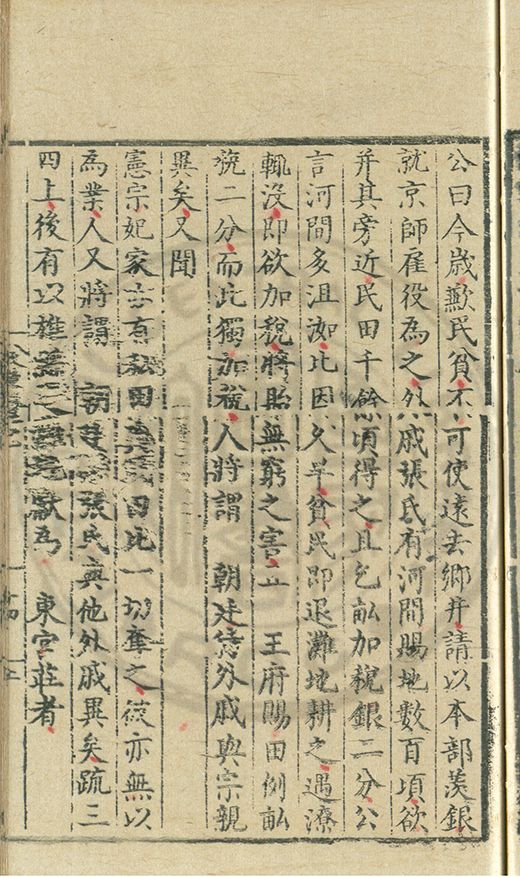 公曰今歲歉民貧不可使遠去鄉井請以本部羨銀
就京師雇役為之外戚張氏有河間賜地數百頃欲
并其旁近民田千餘頃得之且乞畝加稅銀二分公
言河間多沮洳比因久旱貧民即退灘地耕之遇潦
輒沒即欲加稅將貽無窮之害 王府賜田例畝
稅二分而此獨加稅人將謂 朝廷待外戚與宗親
異矣又聞
憲宗妃家亦有私田 田比一切奪之彼亦無以
為業人又將謂 朝廷 張氏與他外戚異矣疏三
四上後有以雄縣 獻為 東宮莊者